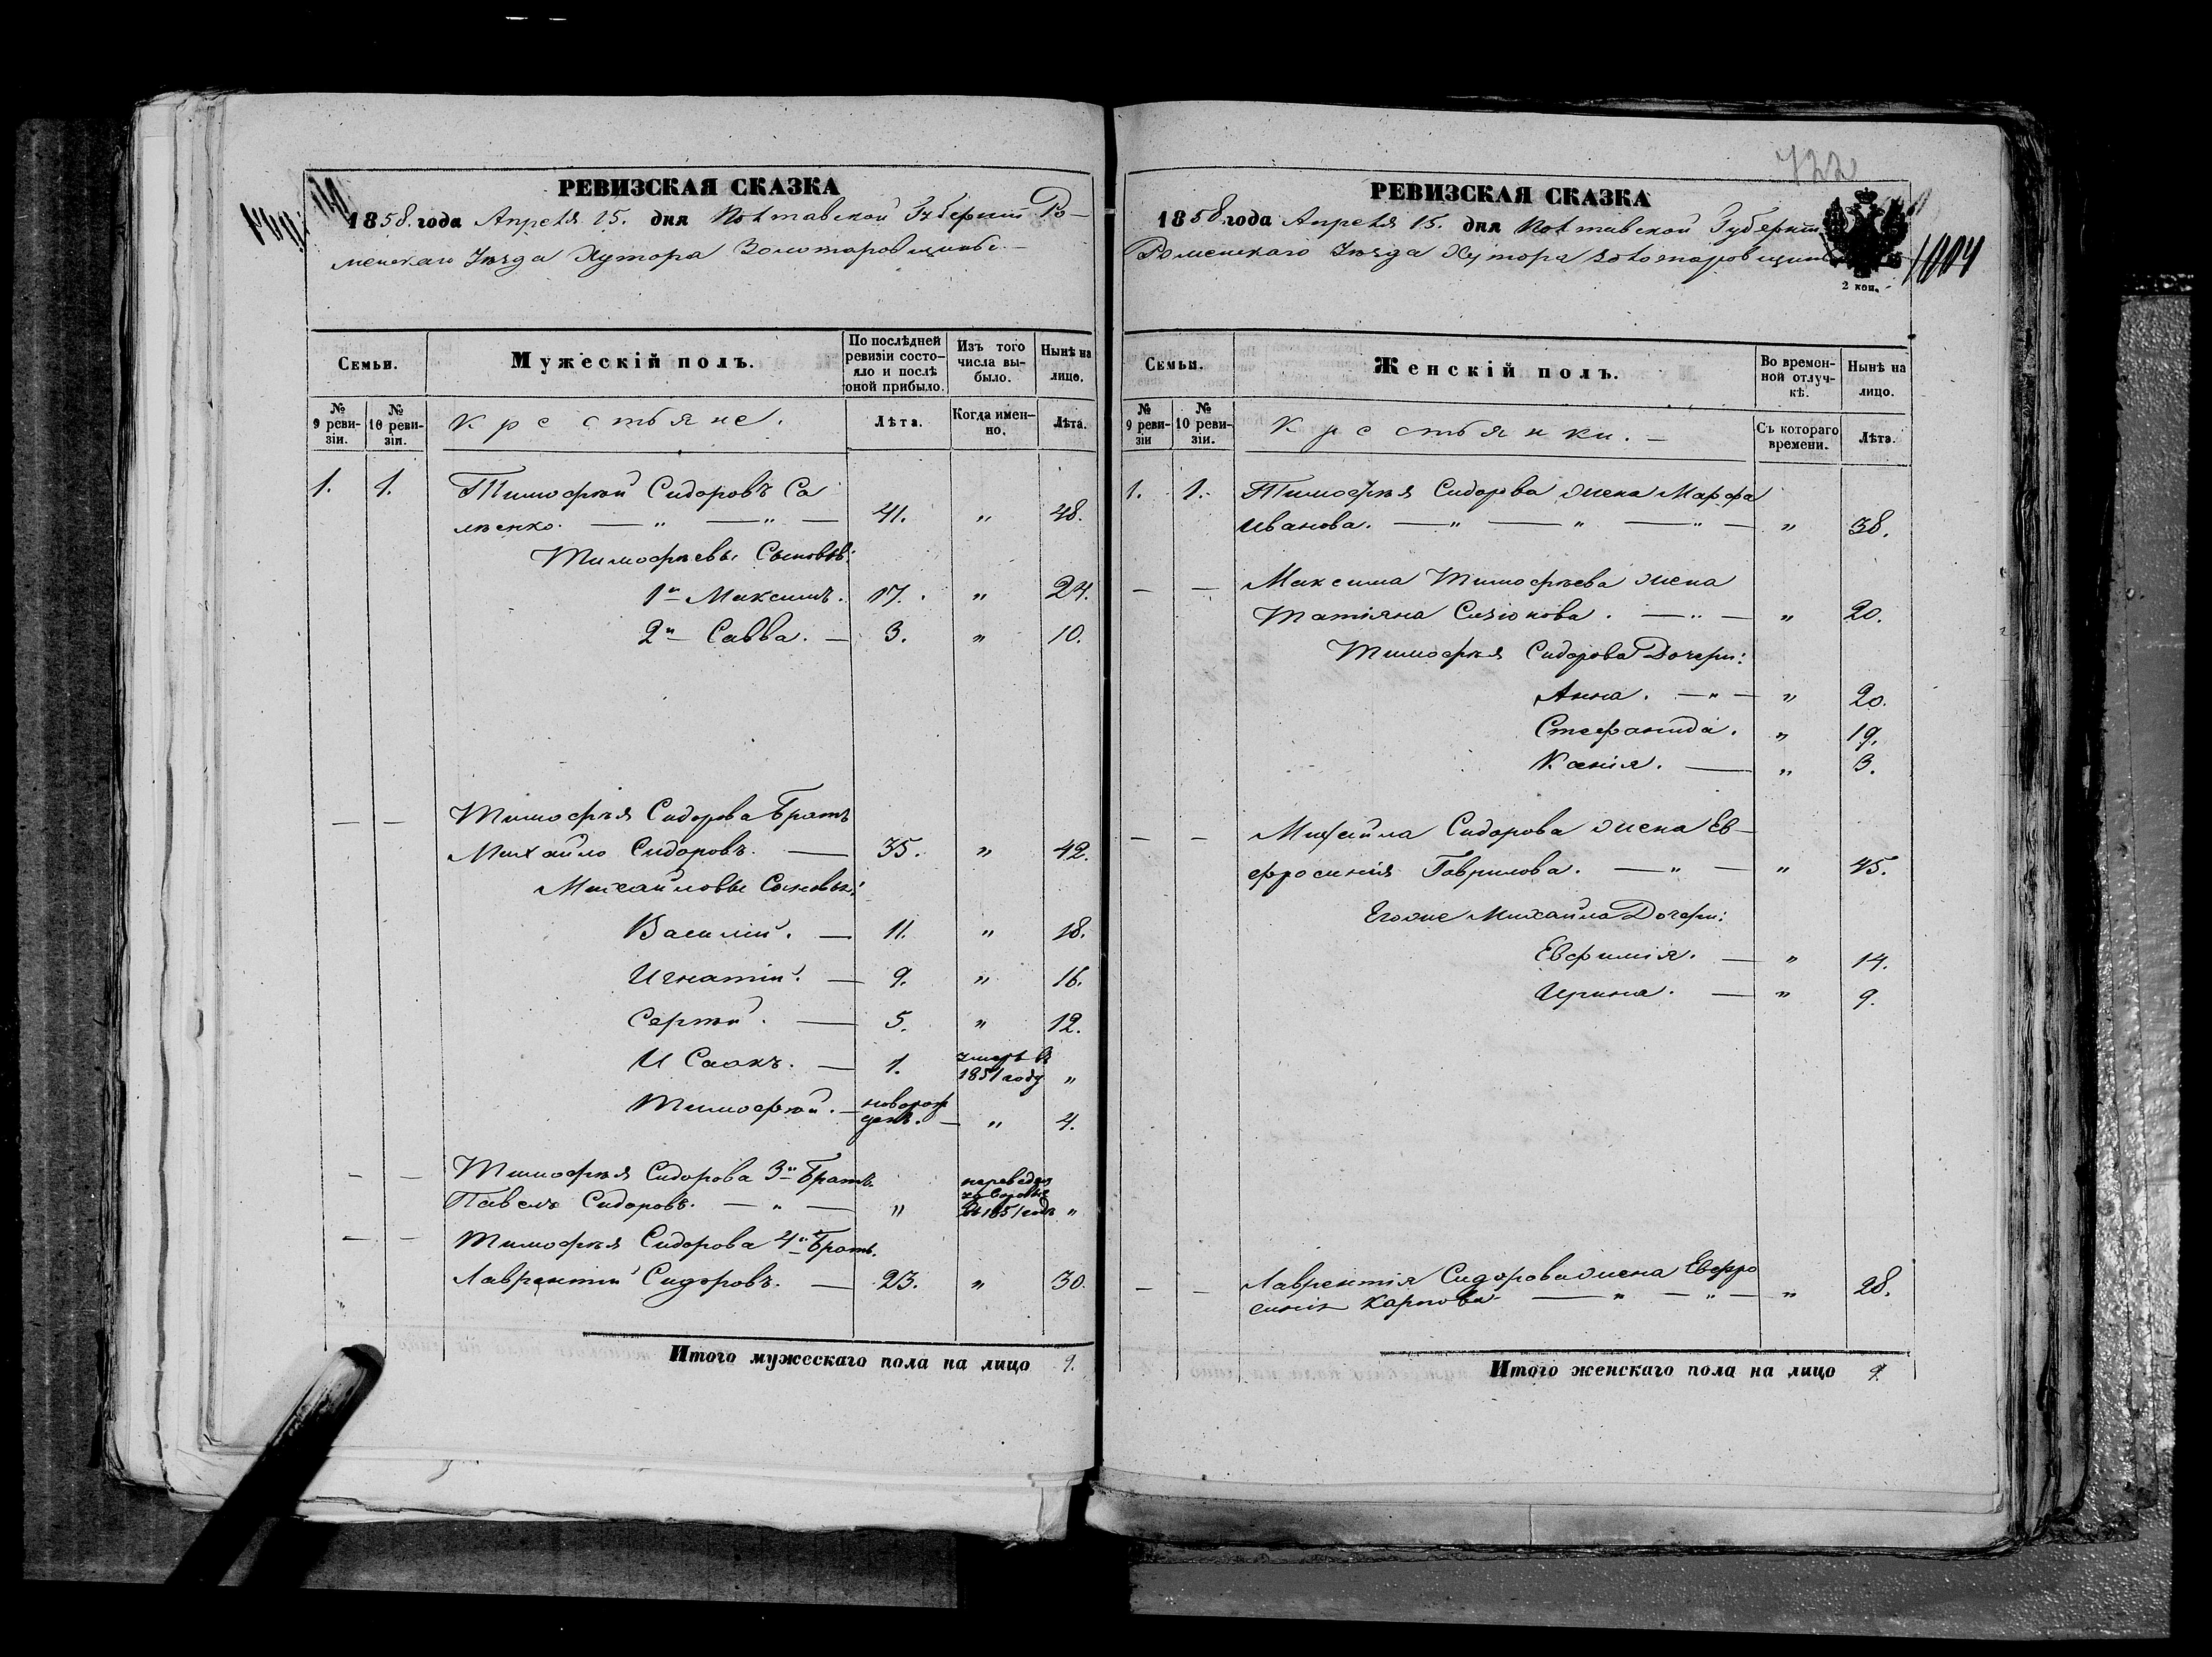 РЕВИЗСКАЯ СКАЗКА
1858. года Апреля 15. дня Полтавской Губернии Ро-
менскаго Уезда Хутора Золотаровщины.-
Семьи.
Мужескій полъ.
По послѣдней ревизіи состояло и послѣ оной прибыло.
Изъ того числа выбыло.
Нынѣ на лицо.
№ 9 ревизіи.
№ 10 ревизіи.
Крестьяне.
Лѣта.
Когда именно.
Лѣта.
1. 1. Тимофей Сидоровъ Са
ленко. — " — " — 41. " 48.
Тимофѣевы Сыновья:
1й Максимъ. 17. " 24.
2й Савва. — 3. " 10.
— — Тимофѣя Сидорова Братъ
Михайло Сидоровъ. — 35. " 42.
Михайловы Сыновья:
Василій. — 11. " 18.
Игнатій. — 9. " 16.
Сергѣй. — 5. " 12.
И Саакъ. — 1. умеръ въ
1851 году "
Тимофей. — новорож
денъ. — " 4.
— — Тимофѣя Сидорова 3й Братъ.
Павелъ Сидоровъ. — " — " въ 1851 годъ "
— — Тимофѣя Сидорова 4й Братъ.
Лаврентій Сидоровъ. — 23. " 30.
Итого мужескаго пола на лицо 9.
722
РЕВИЗСКАЯ СКАЗКА
1858 года Апреля 15. дня Полтавской Губерніи
Роменскаго Уезда Хутора Золотаровщины
2 коп.
1004
Семьи.
Женскій полъ.
Во временной отлучкѣ.
Нынѣ на лицо.
№ 9 ревизіи
№ 10 ревизіи.
Крестьянки. —
Съ котораго времени.
Лѣта.
1. 1. Тимофѣя Сидорова жена Марфа
Иванова. — " — " — " — " 38.
— — Максима Тимофѣева жена
Татіяна Сизіонова. — " — " 20.
Тимофѣя Сидорова Дочери:
Анна. — " — " 20.
Стефанида. " 19.
Ксенія. — " 3.
— — Михайла Сидорова жена Ев-
фросинія Гаврилова. — " — " 45.
Егоже Михайла Дочери:
Евфимія. — " 14.
Ирина. — " 9.
— — Лаврентія Сидорова жена Евфро
синія Карпова — " — " — " 28.
Итого женскаго пола на лицо 9.